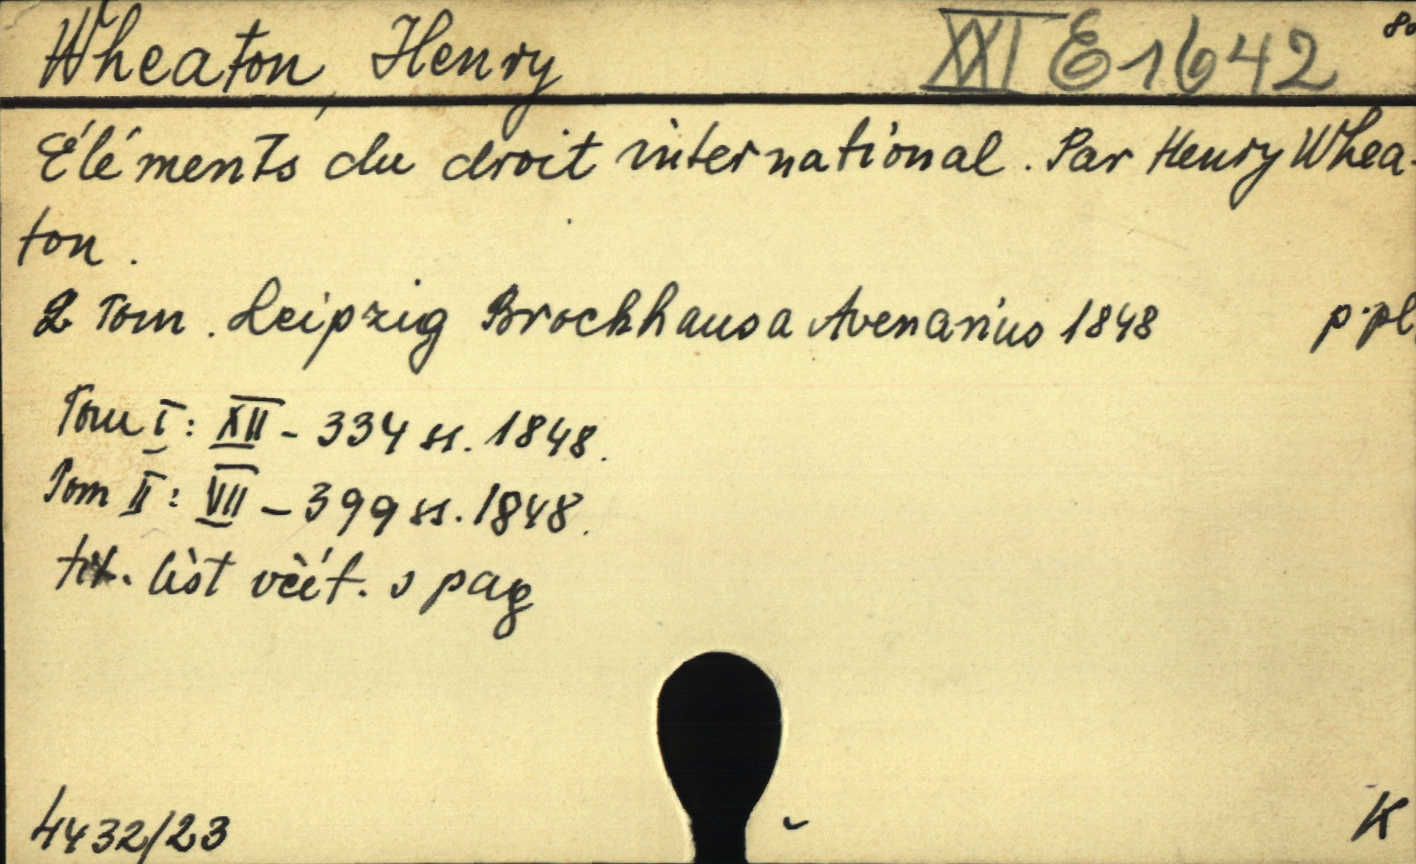 Wheaton, Henry XXI E 1642 80
Éléments du droit international. Par Henry Whea-
ton.
2 Tom. Leipzig Brockhaus a Avenarius 1848 p.pl.
Tom I: XII - 334 ss. 1848.
Tom II: VII - 399 ss. 1848.
tit. list včít. s pag
4432/23 K